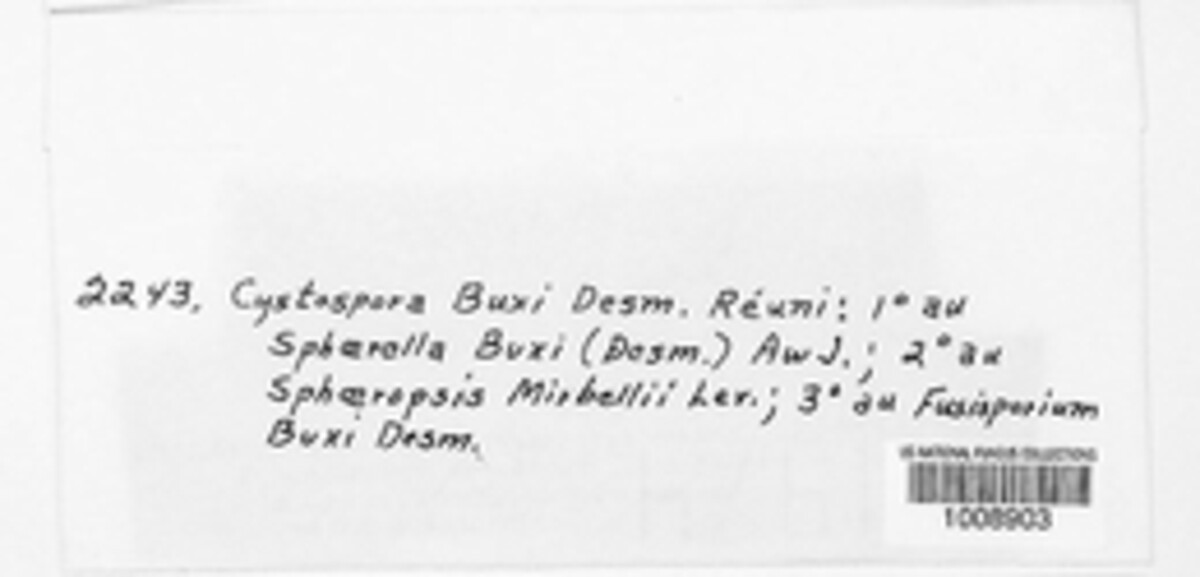 2243. Cystospora Buxi Desm. Réuni: 1° au
Sphærella Buxi (Desm.) Awd.; 2° au
Sphæropsis Mirbellii Lev.; 3° au Fusisporium
Buxi Desm.
US NATIONAL FUNGUS COLLECTIONS
1008903